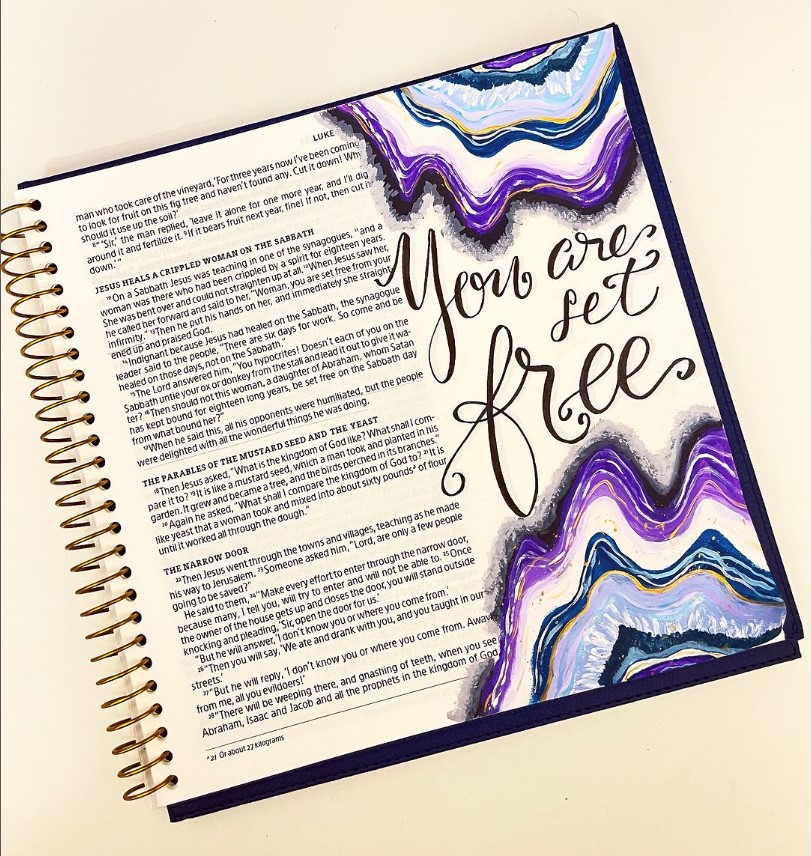 LUKE
man who took care of the vineyard, 'For three years now I've been coming
to look for fruit on this fig tree and haven't found any. Cut it down! Why
should it use up the soil?'
8 "'Sir,' the man replied, 'leave it alone for one more year, and I'll dig
around it and fertilize it. 9 If it bears fruit next year, fine! If not, then cut it
down.'"
JESUS HEALS A CRIPPLED WOMAN ON THE SABBATH
10 On a Sabbath Jesus was teaching in one of the synagogues, 11 and a
woman was there who had been crippled by a spirit for eighteen years.
She was bent over and could not straighten up at all. 12 When Jesus saw her,
he called her forward and said to her, "Woman, you are set free from your
infirmity." 13 Then he put his hands on her, and immediately she straight-
ened up and praised God.
14 Indignant because Jesus had healed on the Sabbath, the synagogue
leader said to the people, "There are six days for work. So come and be
healed on those days, not on the Sabbath."
15 The Lord answered him, "You hypocrites! Doesn't each of you on the
Sabbath untie your ox or donkey from the stall and lead it out to give it wa-
ter? 16 Then should not this woman, a daughter of Abraham, whom Satan
has kept bound for eighteen long years, be set free on the Sabbath day
from what bound her?"
17 When he said this, all his opponents were humiliated, but the people
were delighted with all the wonderful things he was doing.
THE PARABLES OF THE MUSTARD SEED AND THE YEAST
18 Then Jesus asked, "What is the kingdom of God like? What shall I com-
pare it to? 19 It is like a mustard seed, which a man took and planted in his
garden. It grew and became a tree, and the birds perched in its branches."
20 Again he asked, "What shall I compare the kingdom of God to? 21 It is
like yeast that a woman took and mixed into about sixty pounds a of flour
until it worked all through the dough."
THE NARROW DOOR
22 Then Jesus went through the towns and villages, teaching as he made
his way to Jerusalem. 23 Someone asked him, "Lord, are only a few people
going to be saved?"
He said to them, 24 "Make every effort to enter through the narrow door,
because many, I tell you, will try to enter and will not be able to. 25 Once
the owner of the house gets up and closes the door, you will stand outside
knocking and pleading, 'Sir, open the door for us.'
"But he will answer, 'I don't know you or where you come from.'
26 "Then you will say, 'We ate and drank with you, and you taught in our
streets.'
27 "But he will reply, 'I don't know you or where you come from. Away
from me, all you evildoers!'
28 "There will be weeping there, and gnashing of teeth, when you see
Abraham, Isaac and Jacob and all the prophets in the kingdom of God,
a 21 Or about 27 kilograms
You are
set
free